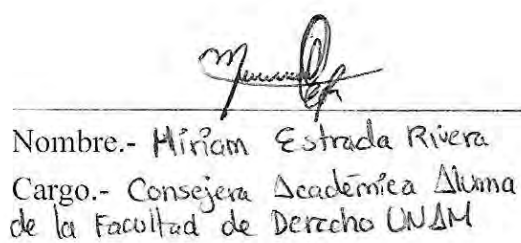 Nombre.- Miriam Estrada Rivera
Cargo.- Consejera Académica Alumna
de la Facultad de Derecho UNAM